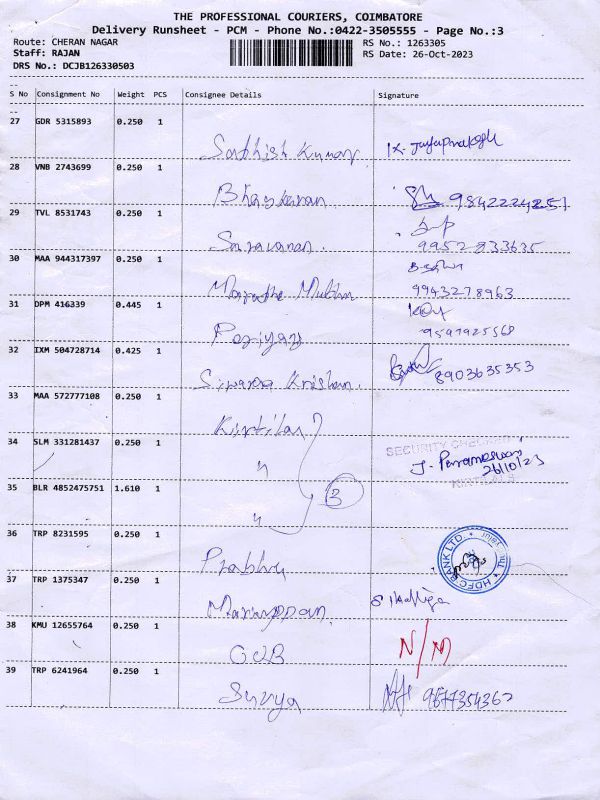 THE PROFESSIONAL COURIERS, COIMBATORE
Delivery Runsheet - PCM - Phone No.:0422-3505555 - Page No.:3
Route: CHERAN NAGAR
RS No.: 1263305
Staff: RAJAN
RS Date: 26-Oct-2023
DRS No.: DCJB126330503
S No Consignment No Weight PCS Consignee Details Signature
27 GDR 5315893 0.250 1
Sathish Kumar
28 VNB 2743699 0.250 1
Bhaskaran 9842224251
29 TVL 8531743 0.250 1
Saravanan. 9952833635
30 MAA 944317397 0.250 1
Muthu 9943278963
31 DPM 416339 0.445 1
9597925568
32 IXM 504728714 0.425 1
Krishnan. 8903635353
33 MAA 572777108 0.250 1
34 SLM 331281437 0.250 1
SECURITY
" J. Parameswari
26/10/23
35 BLR 4852475751 1.610 1
3
"
36 TRP 8231595 0.250 1
HDFC BANK LTD.
Prabhu
37 TRP 1375347 0.250 1
Mariappan.
38 KMU 12655764 0.250 1
N/M
39 TRP 6241964 0.250 1
Surya 9877354362